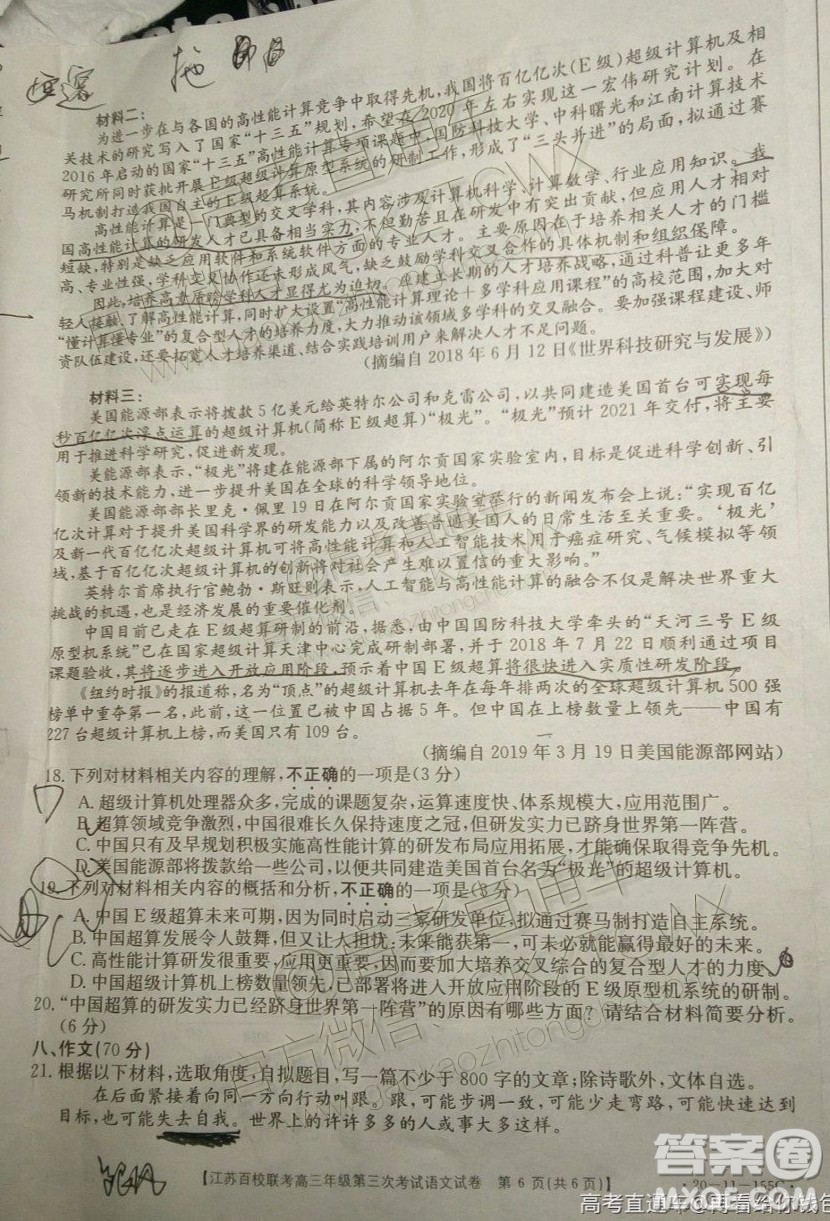 材料二：
为进一步在与各国的高性能计算竞争中取得先机，我国将百亿亿次(E级)超级计算机及相
关技术的研究写入了国家“十三五”规划，希望在2020年左右实现这一宏伟研究计划。在
2016年启动的国家“十三五”高性能计算专项课题中，国防科技大学、中科曙光和江南计算技术
研究所同时获批开展E级超级计算原型系统的研制工作，形成了“三头并进”的局面，拟通过赛
马机制打造我国自主的E级超算系统。
高性能计算是一门典型的交叉科学，其内容涉及计算机科学、计算数学、行业应用知识。我
国高性能计算的研发人才已具备相当实力，不但勤苦且在研发中有突出贡献，但应用人才相对
短缺，特别是缺乏应用软件和系统软件方面的专业人才。主要原因在于培养相关人才的门槛
高、专业性强，学科交叉协作还未形成风气，缺乏鼓励学科交叉合作的具体机制和组织保障。
因此，培养高素质跨学科人才显得尤为迫切。应建立长期的人才培养战略，通过科普让更多年
轻人接触、了解高性能计算，同时扩大设置“高性能计算理论＋多学科应用课程”的高校范围，加大对
“懂计算懂专业”的复合型人才的培养力度，大力推动该领域多学科的交叉融合。要加强课程建设、师
资队伍建设，还要拓宽人才培养渠道、结合实践培训用户来解决人才不足问题。
(摘编自2018年6月12日《世界科技研究与发展》)
材料三：
美国能源部表示将拨款5亿美元给英特尔公司和克雷公司，以共同建造美国首台可实现每
秒百亿亿次浮点运算的超级计算机(简称E级超算)“极光”。“极光”预计2021年交付，将主要
用于推进科学研究，促进科学发现。
美能源部表示，“极光”将建在能源部下属的阿尔贡国家实验室内，目标是促进科学创新、引
领新的技术能力，进一步提升美国在全球的科学领导地位。
美国能源部部长里克·佩里19日在阿尔贡国家实验室举行的新闻发布会上说：“实现百亿
亿次计算对于提升美国科学界的研发能力以及改善普通美国人的日常生活至关重要。‘极光’
及新一代百亿亿次超级计算机可将高性能计算和人工智能技术用于癌症研究、气候模拟等领
域，基于百亿亿次超级计算机的创新将对社会产生难以置信的重大影响。”
英特尔首席执行官鲍勃·斯旺则表示，人工智能与高性能计算的融合不仅是解决世界重大
挑战的机遇，也是经济发展的重要催化剂。
中国目前已走在E级超算研制的前沿，据悉，由中国国防科技大学牵头的“天河三号E级
原型机系统”已在国家超级计算天津中心完成研制部署，并于2018年7月22日顺利通过项目
课题验收，其将逐步进入开放应用阶段，预示着中国E级超算将很快进入实质性研发阶段。
《纽约时报》的报道称，名为“顶点”的超级计算机去年在每年排两次的全球超级计算机500强
榜单中重夺第一名，此前，这一位置已被中国占据5年。但中国在上榜数量上领先——中国有
227台超级计算机上榜，而美国只有109台。
(摘编自2019年3月19日美国能源部网站)
18.下列对材料相关内容的理解，不正确的一项是(3分)
A.超级计算机处理器众多，完成的课题复杂，运算速度快、体系规模大，应用范围广。
B.超算领域竞争激烈，中国很难长久保持速度之冠，但研发实力已跻身世界第一阵营。
C.中国只有及早规划积极实施高性能计算的研发布局应用拓展，才能确保取得竞争先机。
D.美国能源部将拨款给一些公司，以便共同建造美国首台名为“极光”的超级计算机。
19.下列对材料相关内容的概括和分析，不正确的一项是(3分)
A.中国E级超算未来可期，因为同时启动三家研发单位，拟通过赛马制打造自主系统。
B.中国超算发展令人鼓舞，但又让人担忧：未来能获第一，可未必就能赢得最好的未来。
C.高性能计算研发很重要，应用更重要，因而要加大培养交叉综合的复合型人才的力度。
D.中国超级计算机上榜数量领先，已部署将进入开放应用阶段的E级原型机系统的研制。
20.“中国超算的研发实力已经跻身世界第一阵营”的原因有哪些方面？请结合材料简要分析。
(6分)
八、作文(70分)
21.根据以下材料，选取角度，自拟题目，写一篇不少于800字的文章；除诗歌外，文体自选。
在后面紧接着向同一方向行动叫跟。跟，可能步调一致，可能少走弯路，可能快速达到
目标，也可能失去自我。世界上的许许多多的人或事，大多这样。
【江苏百校联考高三年级第三次考试语文试卷 第6页(共6页)】
·20-11-155C·
答案圈
高考直通车@再看给你钱包